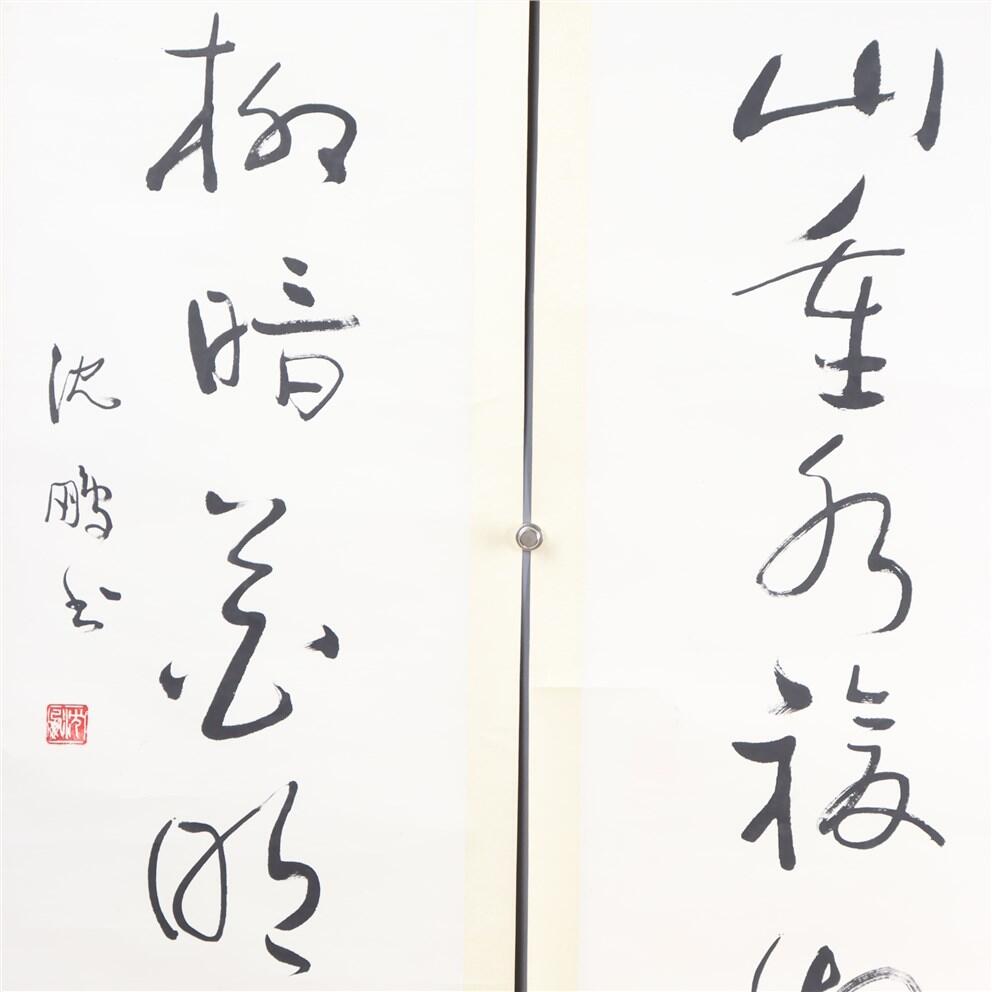 山重水複
柳暗花明
沈鹏书